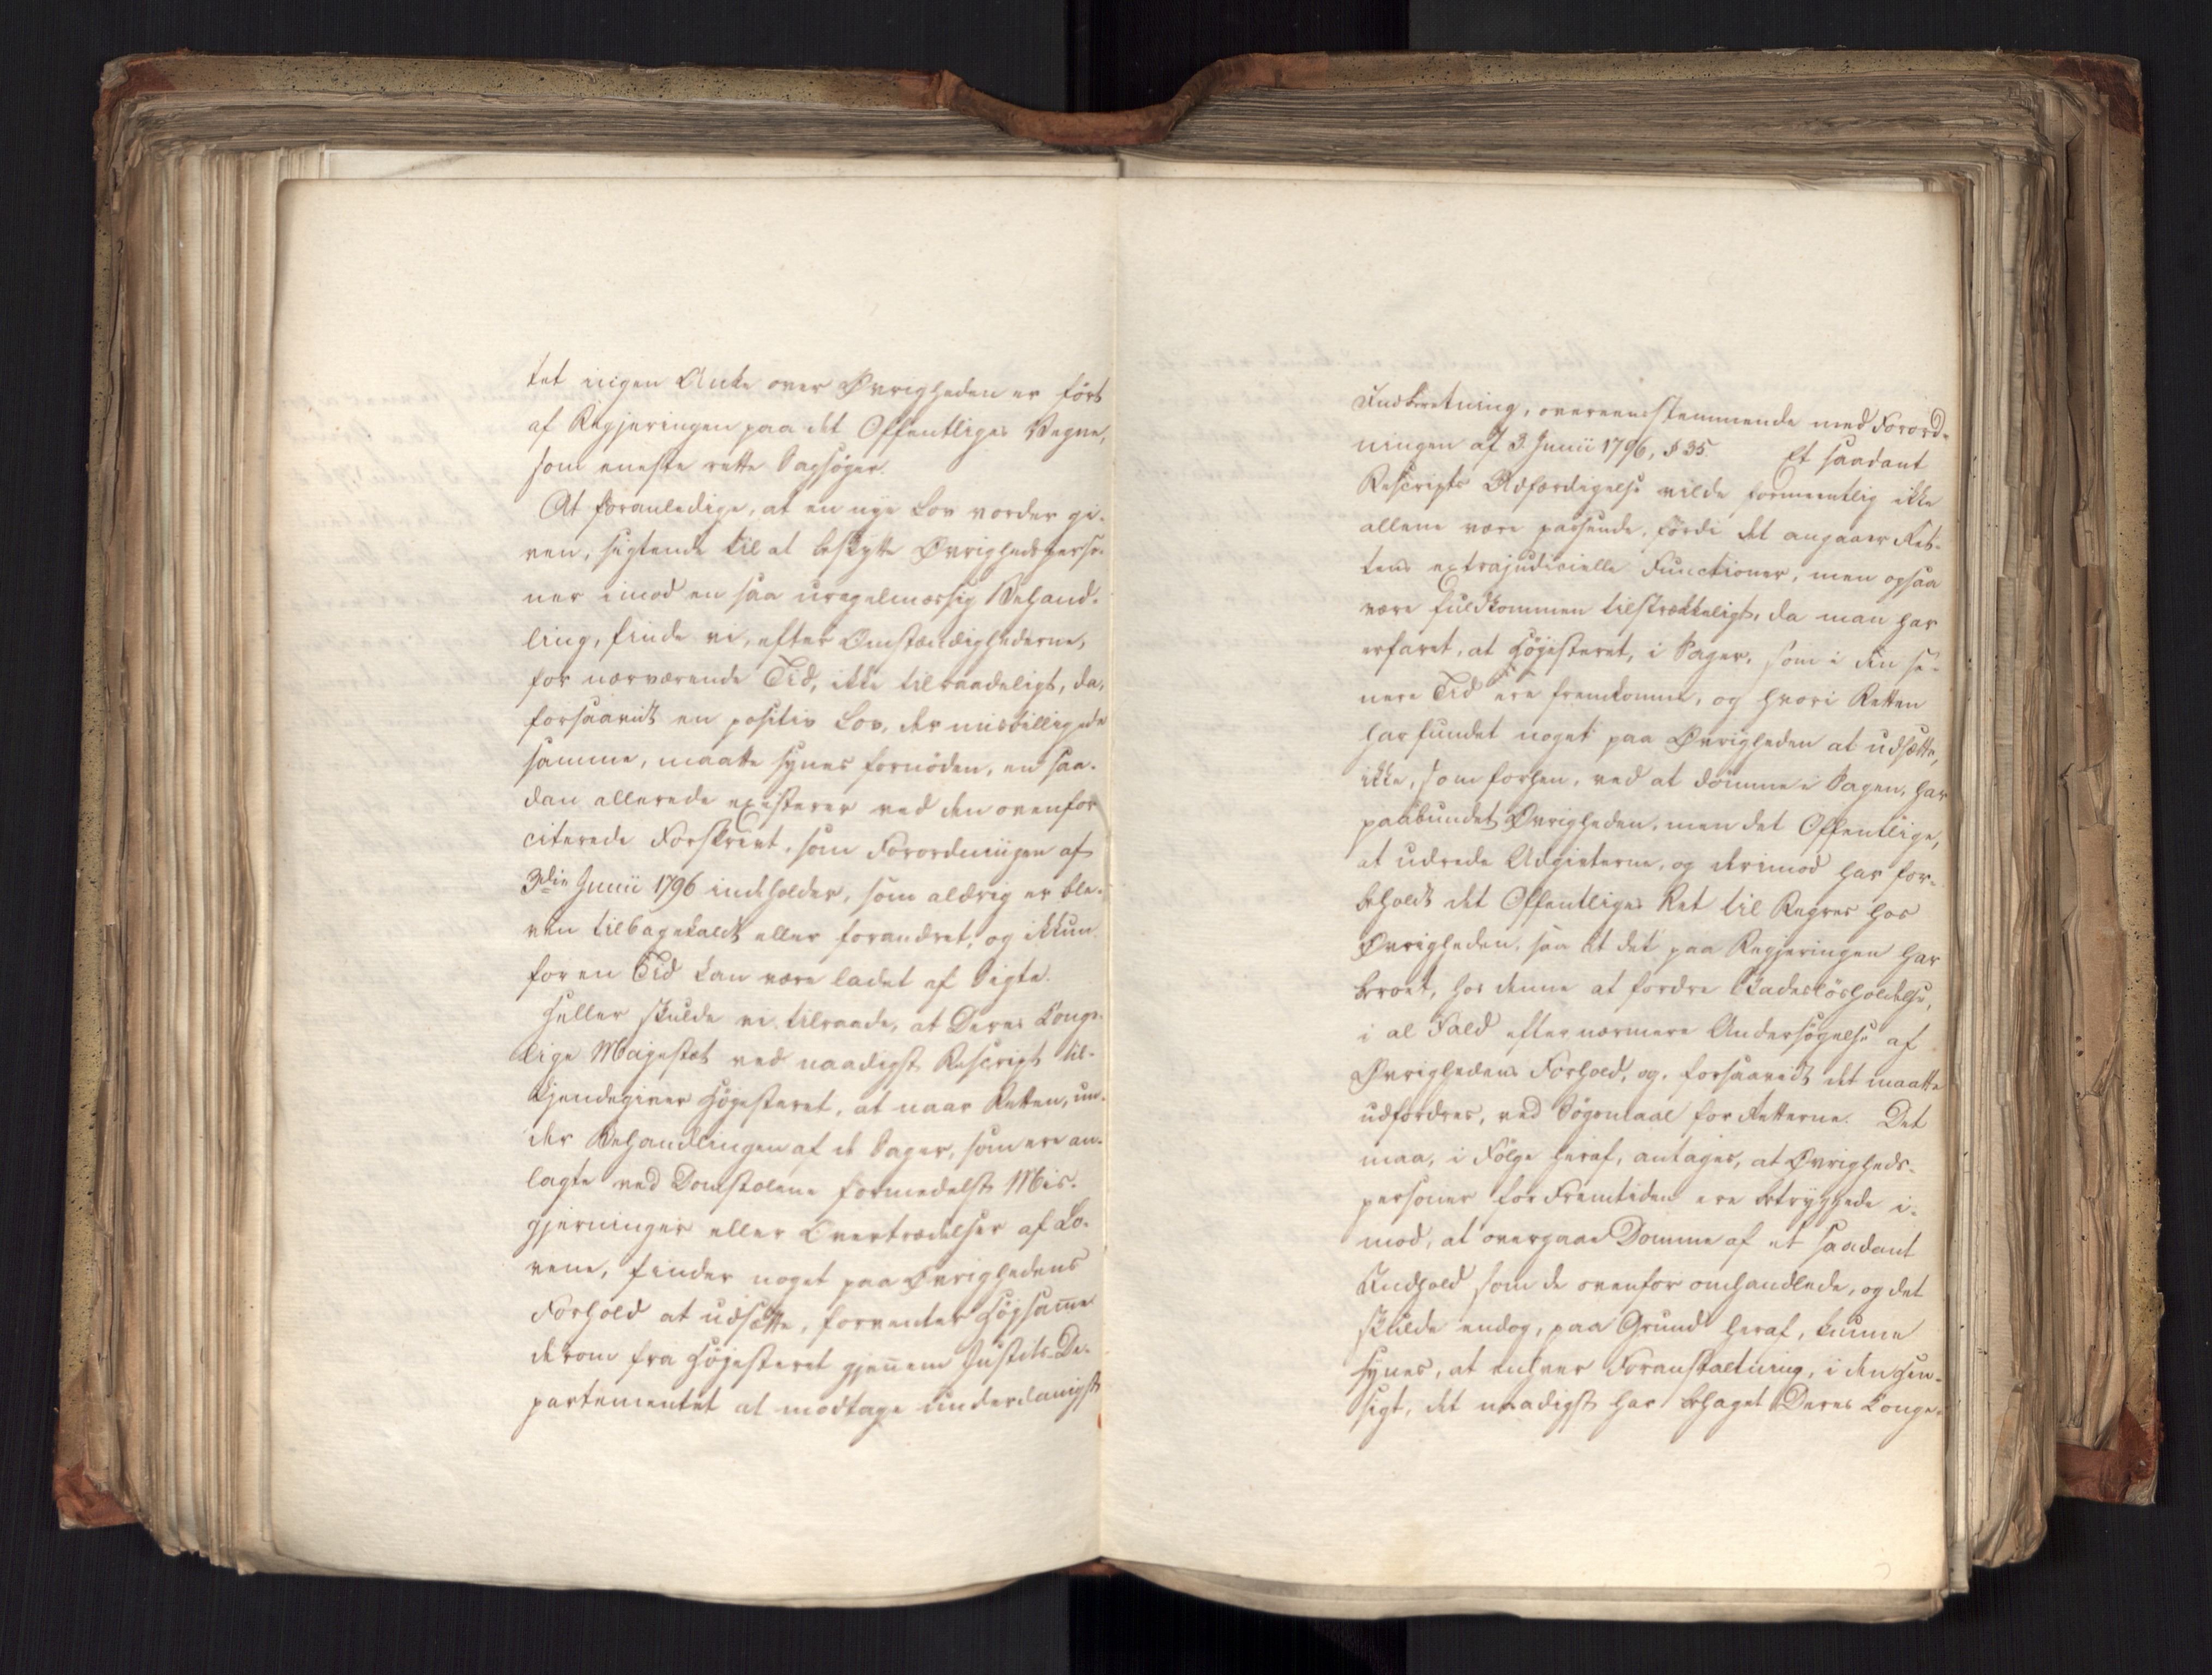 tet ingen Anke over Øvrigheden er ført
af Regjeringen paa det Offentliges Vegne,
som eneste rette Sagsøger.
At foranledige, at en nye Lov vorder gi-
ven, sigtende til at beskytte Øvrighedsperso-
ner imod en saa uregelmæssig Behand-
ling, finde vi, efter Omstændighederne,
for nærværende Tid, ikke tilraadeligt, da,
forsaavidt en positiv Lov, der misbilligede
samme, maatte synes fornøden, en saa-
dan allerede existerer ved den ovenfor
citerede Forskrivt, som Forordningen af
3die Junii 1796 indeholder, som aldrig er ble-
ven tilbagekaldt eller forandret, og ikkun
for en Tid kan være ladet af Sigte.
Heller skulde vi tilraade, at Deres Konge-
lige Majestæt ved naadigst Rescript til-
kjendegiver Højesteret, at naar Retten, un-
der Behandlingen af de Sager, som ere an-
lagte ved Domstolene formedelst Mis-
gjerninger eller Overtrædelser af Lo-
vene, finder noget paa Øvrighedens
Forhold at udsætte, forventer Højsamme
derom fra Højesteret gjennem Justits-De-
partementet at modtage underdanigst
Indberetning, overeensstemmende med Forord-
ningen af 3 Junii 1796, § 35. Et saadant
Rescripts Udfærdigelse vilde formeentlig ikke
allene være passende, fordi det angaaer Ret-
tens extrajudicielle Functioner, men ogsaa
være fuldkommen tilstrækkeligt, da man har
erfaret, at Højesteret, i Sager, som i den se-
nere Tid ere fremkomne, og hvori Retten
har fundet noget paa Øvrigheden at udsætte,
ikke, som forhen, ved at dømme i Sagen, har
paabundet Øvrigheden, men det Offentlige,
at udrede Udgivterne, og derimod har for-
beholdt det Offentliges Ret til Regres hos
Øvrigheden, saa at det paa Regjeringen har
beroet, hos denne at fordre Skadesløsholdelse,
i al Fald efter nærmere Undersøgelse af
Øvrighedens Forhold, og, forsaavidt det maatte
udfordres, ved Søgsmaal for Retterne. Det
maa, i Følge heraf, antages, at Øvrigheds-
personer for Fremtiden ere betryggede i-
mod, at overgaae Domme af et saadant
Indhold som de ovenfor omhandlede, og det
skulde endog, paa Grund heraf, kunne
synes, at enhver Foranstaltning, i den Hen-
sigt, det naadigst har behaget Deres Konge-